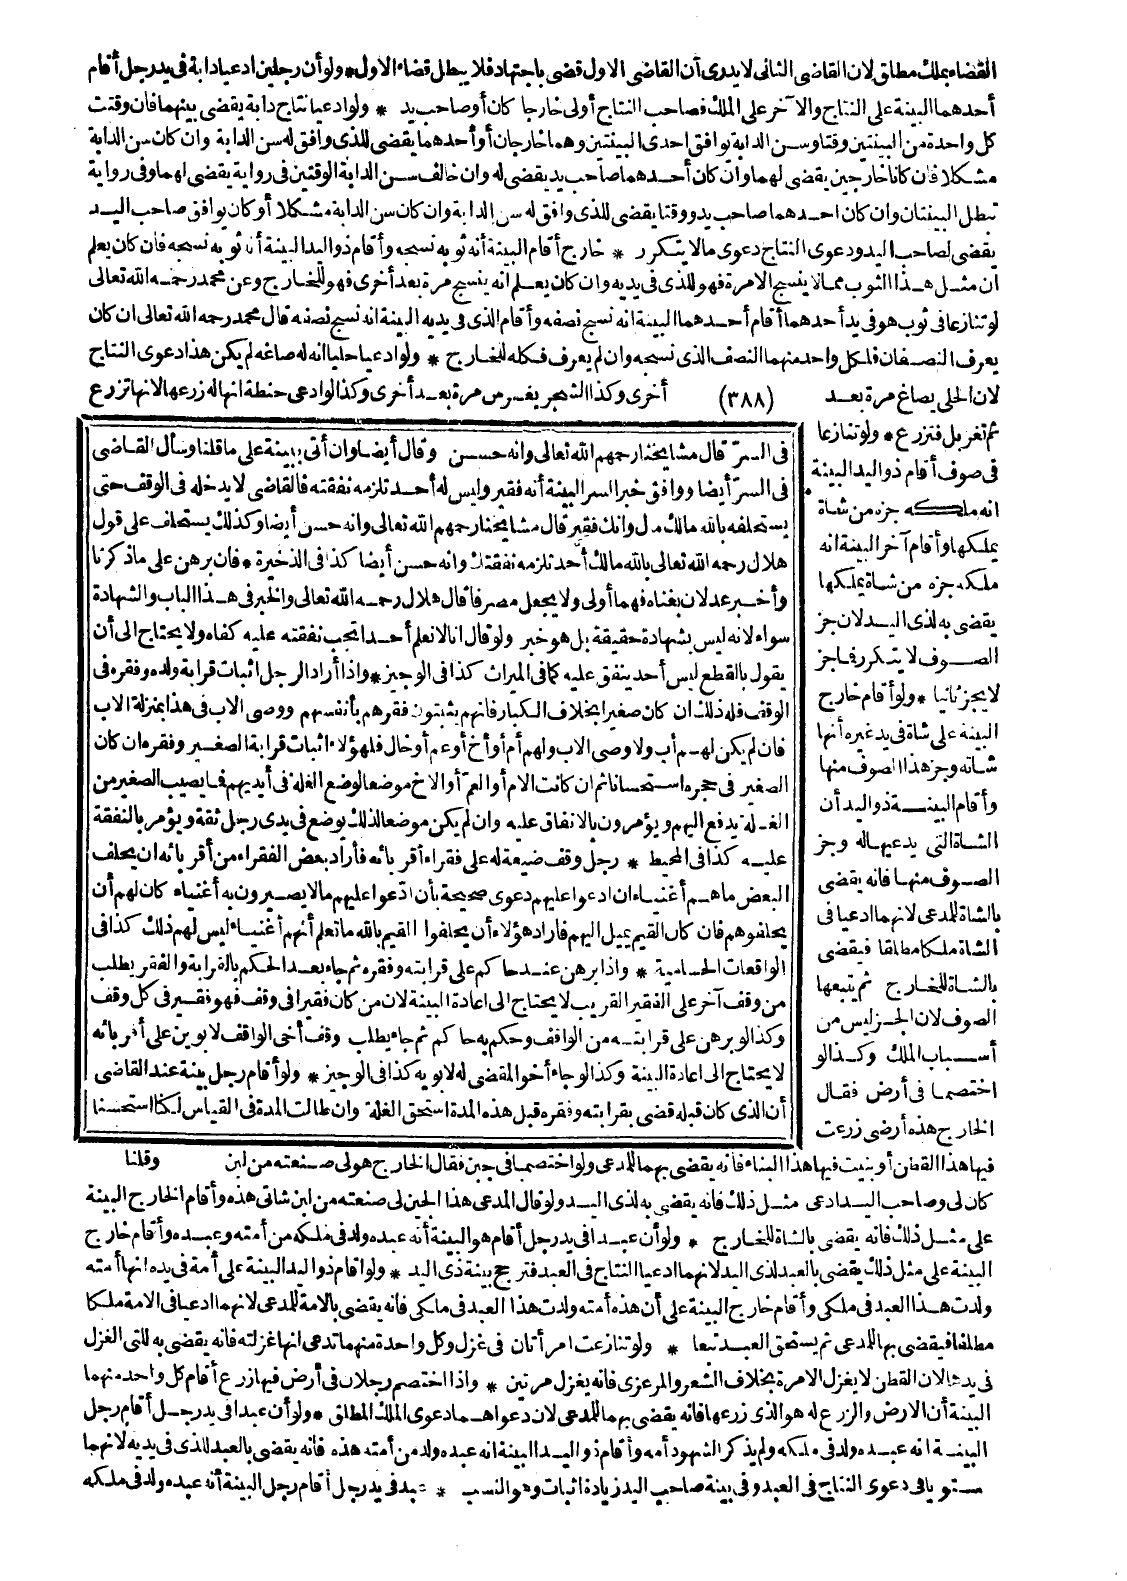 القضاء بملك مطلق لان القاضى الثانى لا يدرى أن القاضى الاول قضى باجتهاد فلا يبطل قضاء الاول * ولو أن رجلين ادعيا دابة فى يد رجل أقام
أحدهما البينة على النتاج والآخر على الملك فصاحب النتاج أولى خارجا كان أو صاحب يد * ولو ادعيا نتاج دابة يقضى بينهما فان وقتت
كل واحدة من البينتين وقتا وسن الدابة توافق احدى البينتين وهما خارجان أو أحدهما يقضى للذى وافق له سن الدابة وان كان سن الدابة
مشكلا فان كانا خارجين يقضى لهما وان كان أحدهما صاحب يد يقضى له وان خالف سن الدابة الوقتين فى رواية يقضى لهما وفى رواية
تبطل البينتان وان كان احدهما صاحب يد ووقتا يقضى للذى وافق له سن الدابة وان كان سن الدابة مشكلا أو كان يوافق صاحب اليد
يقضى لصاحب اليد ودعوى النتاج دعوى ما لا يتكرر * خارج أقام البينة أنه ثوبه نسجه وأقام ذو اليد البينة أنه ثوبه نسجه فان كان يعلم
ان مثل هذا الثوب مما لا ينسج الا مرة فهو للذى فى يديه وان كان يعلم انه ينسج مرة بعد أخرى فهو للخارج وعن محمد رحمه الله تعالى
لو تنازعا فى ثوب هو فى يد أحدهما أقام أحدهما البينة انه نسج نصفه وأقام الذى فى يديه البينة انه نسج نصفه قال محمد رحمه الله تعالى ان كان
يعرف النصفان فلكل واحد منهما النصف الذى نسجه وان لم يعرف فكله للخارج * ولو ادعيا حليا انه له صاغه لم يكن هذا دعوى النتاج
لان الحلى يصاغ مرة بعد (٣٨٨) أخرى وكذا الشجر يغرس مرة بعد أخرى وكذا لو ادعى حنطة انها له زرعها لانها تزرع
ثم تغربل فتزرع * ولو تنازعا
فى صوف أقام ذو اليد البينة
انه ملكه جزه من شاة
يملكها وأقام آخر البينة انه
ملكه جزه من شاة يملكها
يقضى به لذى اليد لان جز
الصوف لا يتكرر فما جز
لا يجز ثانيا * ولو أقام خارج
البينة على شاة فى يد غيره أنها
شاته وجز هذا الصوف منها
وأقام البينة ذو اليد أن
الشاة التى يدعيها له وجز
الصوف منها فانه يقضى
بالشاة للمدعى لانهما ادعيا فى
الشاة ملكا مطلقا فيقضى
بالشاة للخارج ثم يتبعها
الصوف لان الجز ليس من
أسباب الملك وكذا لو
اختصما فى أرض فقال
الخارج هذه أرضى زرعت
فى السر قال مشايخنا رحمهم الله تعالى وانه حسن وقال أيضا وان أتى ببينة على ما قلنا وسأل القاضى
فى السر أيضا ووافق خبر السر البينة أنه فقير وليس له أحد تلزمه نفقته فالقاضى لا يدخله فى الوقف حتى
يستحلفه بالله مالك مال وانك فقير قال مشايخنا رحمهم الله تعالى وانه حسن أيضا وكذلك يستحلف على قول
هلال رحمه الله تعالى بالله مالك أحد تلزمه نفقتك وانه حسن أيضا كذا فى الذخيرة * فان برهن على ما ذكرنا
وأخبر عدلان بغناه فهما أولى ولا يجعل مصرفا قال هلال رحمه الله تعالى والخبر فى هذا الباب والشهادة
سواء لانه ليس بشهادة حقيقة بل هو خبر ولو قال انا لا نعلم أحدا تجب نفقته عليه كفاه ولا يحتاج الى أن
يقول بالقطع ليس أحد ينفق عليه كما فى الميراث كذا فى الوجيز * واذا أراد الرجل اثبات قرابة ولده وفقره فى
الوقف فله ذلك ان كان صغيرا بخلاف الكبار فانهم يثبتون فقرهم بأنفسهم ووصى الاب فى هذا بمنزلة الاب
فان لم يكن لهم أب ولا وصى الاب ولهم أم أو أخ أو عم أو خال فلهؤلاء اثبات قرابة الصغير وفقره ان كان
الصغير فى حجره استحسانا ثم ان كانت الام أو العم أو الاخ موضعا لوضع الغلة فى أيديهم فما يصيب الصغير من
الغلة يدفع اليهم ويؤمرون بالانفاق عليه وان لم يكن موضعا لذلك يوضع فى يدى رجل ثقة ويؤمر بالنفقة
عليه كذا فى المحيط * رجل وقف ضيعة له على فقراء أقربائه فأراد بعض الفقراء من أقربائه ان يحلف
البعض ما هم أغنياء ان ادعوا عليهم دعوى صحيحة بأن ادعوا عليهم مالا يصيرون به أغنياء كان لهم أن
يحلفوهم فان كان القيم يميل اليهم فأراد هؤلاء أن يحلفوا القيم بالله ما تعلم أنهم أغنياء ليس لهم ذلك كذا فى
الواقعات الحسامية * واذا برهن عند حاكم على قرابته وفقره ثم جاء بعد الحكم بالقرابة والفقر يطلب
من وقف آخر على الفقير القريب لا يحتاج الى اعادة البينة لان من كان فقيرا فى وقف فهو فقير فى كل وقف
وكذا لو برهن على قرابته من الواقف وحكم به حاكم ثم جاء يطلب وقف أخى الواقف لابوين على أقربائه
لا يحتاج الى اعادة البينة وكذا لو جاء أخو المقضى له لابويه كذا فى الوجيز * ولو أقام رجل بينة عند القاضى
أن الذى كان قبله قضى بقرابته وفقره قبل هذه المدة استحق الغلة وان طالت المدة فى القياس لكنا استحسنا
وقلنا
فيها هذا القطن أو بنيت فيها هذا البناء فانه يقضى بهما للمدعى ولو اختصما فى جبن فقال الخارج هو لى صنعته من لبن
كان لى وصاحب اليد ادعى مثل ذلك فانه يقضى به لذى اليد ولو قال المدعى هذا الجبن لى صنعته من لبن شاتى هذه وأقام الخارج البينة
على مثل ذلك فانه يقضى بالشاة للخارج * ولو أن عبدا فى يد رجل أقام هو البينة أنه عبده ولد فى ملكه من أمته وعبده وأقام خارج
البينة على مثل ذلك يقضى بالعبد لذى اليد لانهما ادعيا النتاج فى العبد فترجح بينة ذى اليد * ولو اقام ذو اليد البينة على أمة فى يده انها أمته
ولدت هذا العبد فى ملكى وأقام خارج البينة على أن هذه أمته ولدت هذا العبد فى ملكى فانه يقضى بالامة للمدعى لانهما ادعيا فى الامة ملكا
مطلقا فيقضى بها للمدعى ثم يستحق العبد تبعا * ولو تنازعت امرأتان فى غزل وكل واحدة منهما تدعى انها غزلته فانه يقضى به للتى الغزل
فى يدها لان القطن لا يغزل الا مرة بخلاف الشعر والمرعزى فانه يغزل مرتين * واذا اختصم رجلان فى أرض فيها زرع أقام كل واحد منهما
البينة أن الارض والزرع له هو الذى زرعها فانه يقضى بهما للمدعى لان دعواهما دعوى الملك المطلق * ولو أن عبدا فى يد رجل أقام رجل
البينة انه عبده ولد فى ملكه ولم يذكر الشهود أمه وأقام ذو اليد البينة انه عبده ولد من أمته هذه فانه يقضى بالعبد للذى فى يديه لانهما
ستويا فى دعوى النتاج فى العبد وفى بينة صاحب اليد زيادة اثبات وهو النسب * عبد فى يد رجل أقام رجل البينة أنه عبده ولد فى ملكه